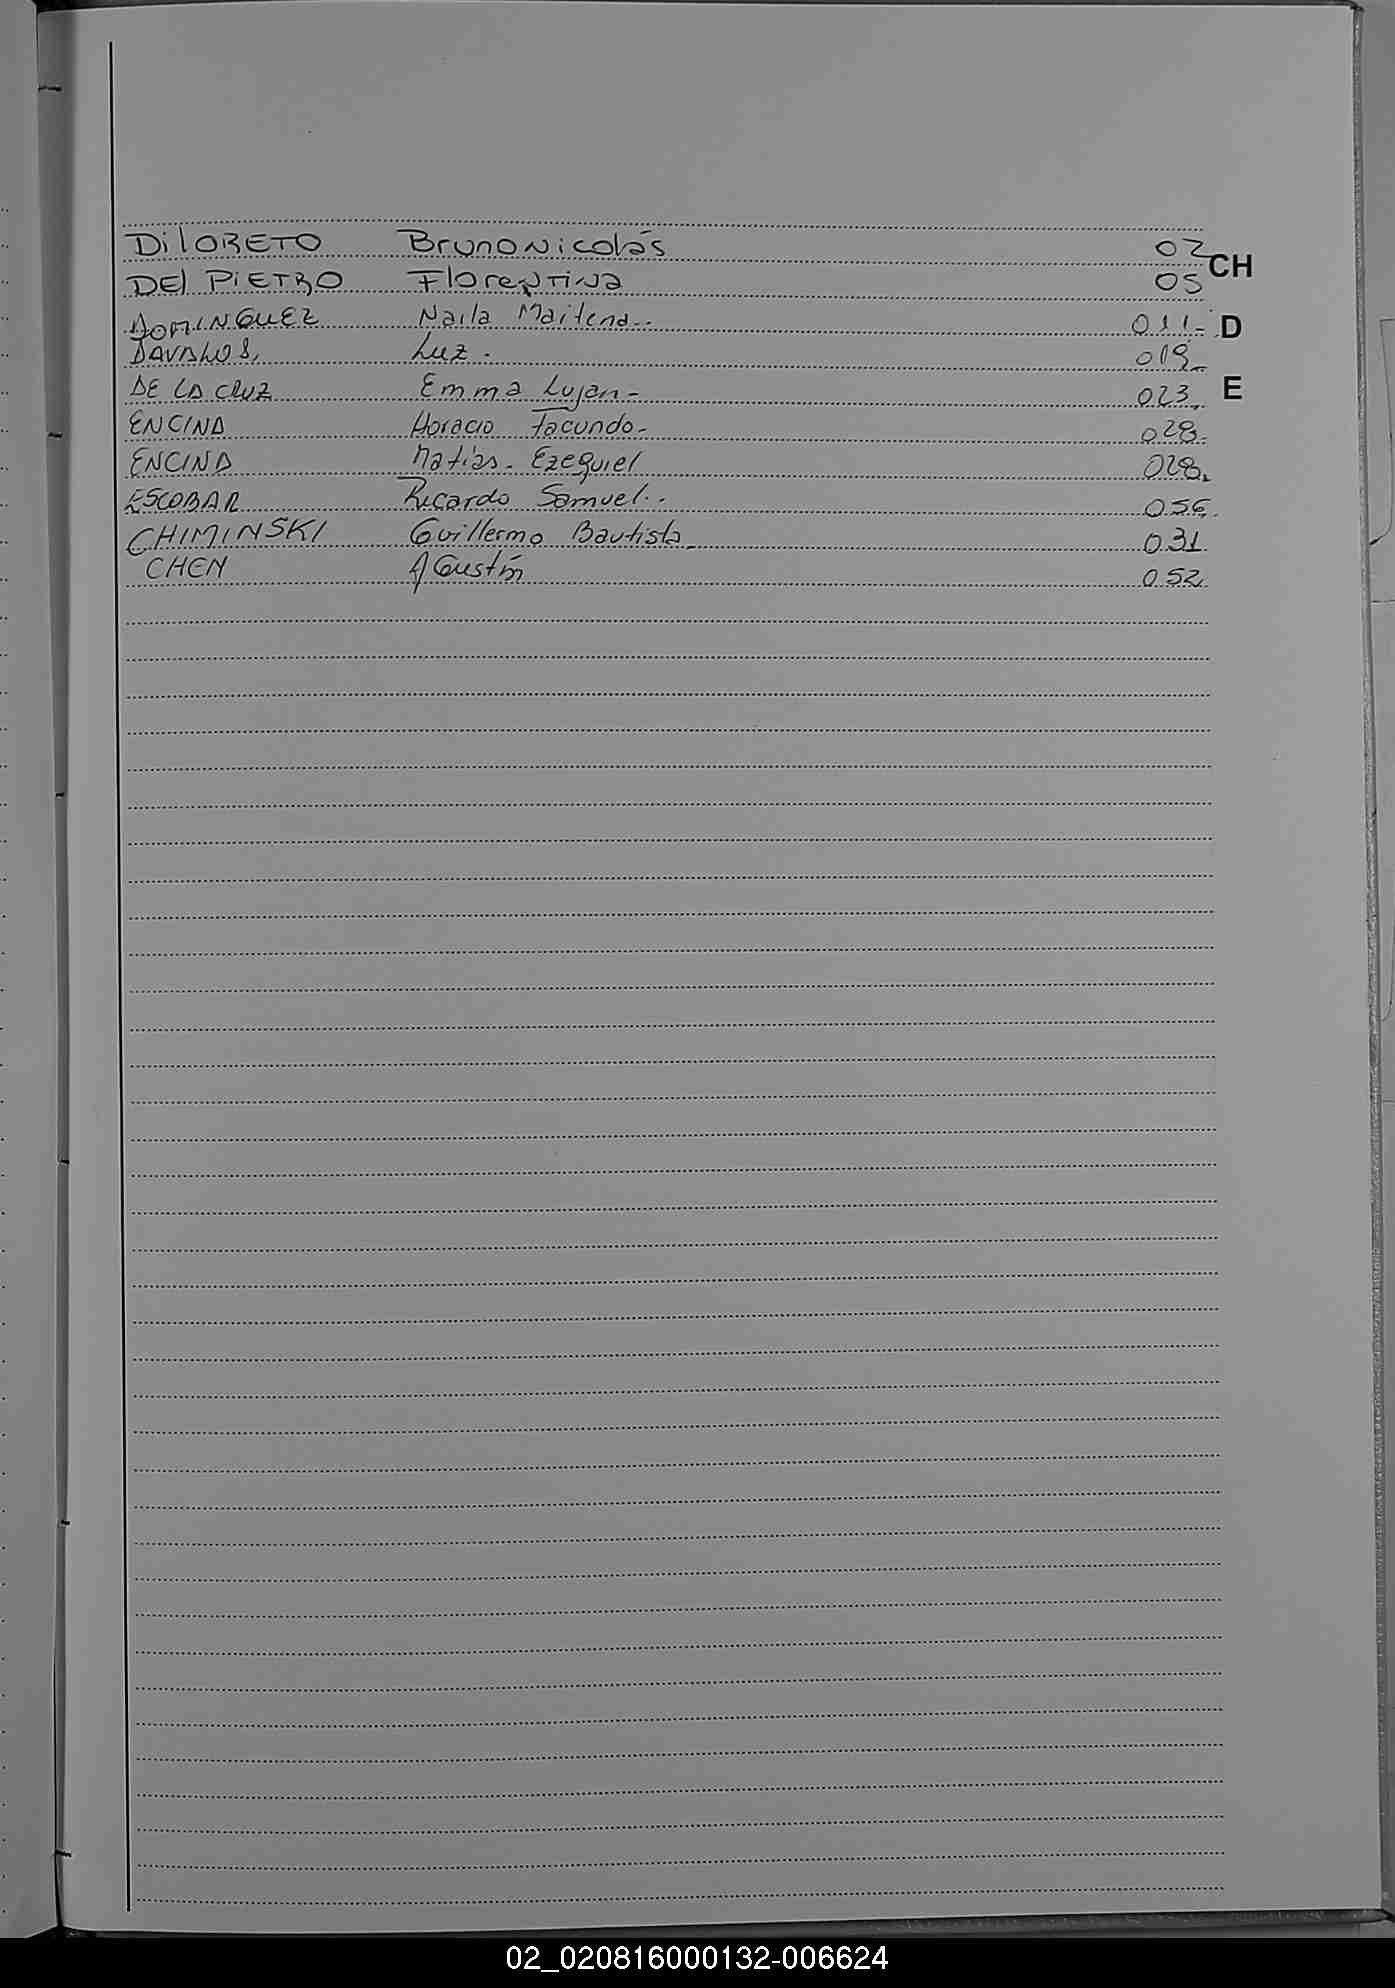 DilORETO Bruno Nicolás 02
DEl PiETRO Florentina 05
CH
DOMINGUEZ Naila Maitena.- 011.-
D
DAVALOS, Luz. 019.-
DE LA CRUZ Emma Lujan- 023.-
E
ENCINA Horacio Facundo- 028.
ENCINA Matías. Ezequiel 028.
ESCOBAR Ricardo Samuel.. 056.
CHIMINSKI Guillermo Bautista 031
CHEN Agustín 052
02_020816000132-006624